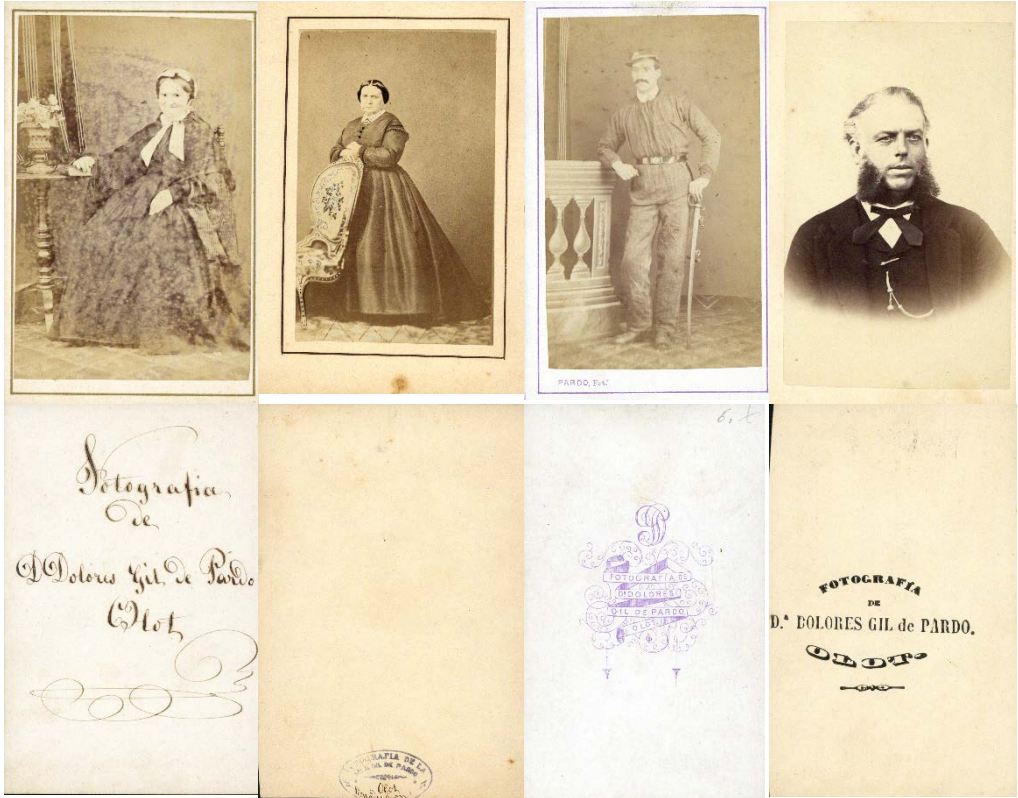 PARDO, Fot.
Fotografia
de
D Dolores Gil de Pardo
Olot
FOTOGRAFIA DE LA
GIL DE PARDO
Olot
6.
FOTOGRAFIA DE
Dª DOLORES
GIL DE PARDO
OLOT
FOTOGRAFÍA
DE
D.ª DOLORES GIL de PARDO.
OLOT.